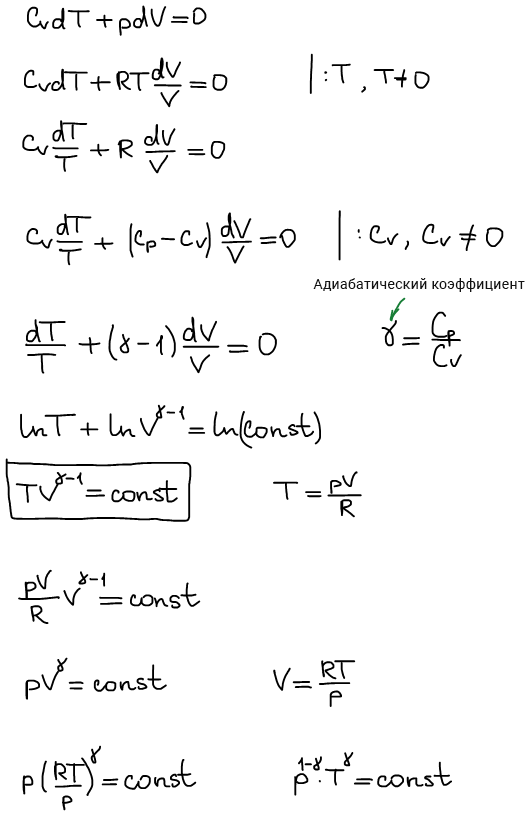 CvdT + pdV = 0
CvdT + RT dV/V = 0 | : T , T ≠ 0
Cv dT/T + R dV/V = 0
Cv dT/T + (Cp - Cv) dV/V = 0 | : Cv , Cv ≠ 0
Адиабатический коэффициент
dT/T + (γ-1) dV/V = 0 γ = Cp/Cv
lnT + lnV^(γ-1) = ln(const)
TV^(γ-1) = const T = pV/R
pV/R V^(γ-1) = const
pV^γ = const V = RT/p
p(RT/p)^γ = const p^(1-γ) · T^γ = const